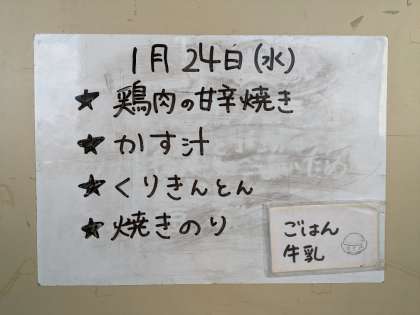 1月 24日(水)
★ 鶏肉の甘辛焼き
★ かす汁
★ くりきんとん
★ 焼きのり
ごはん
牛乳